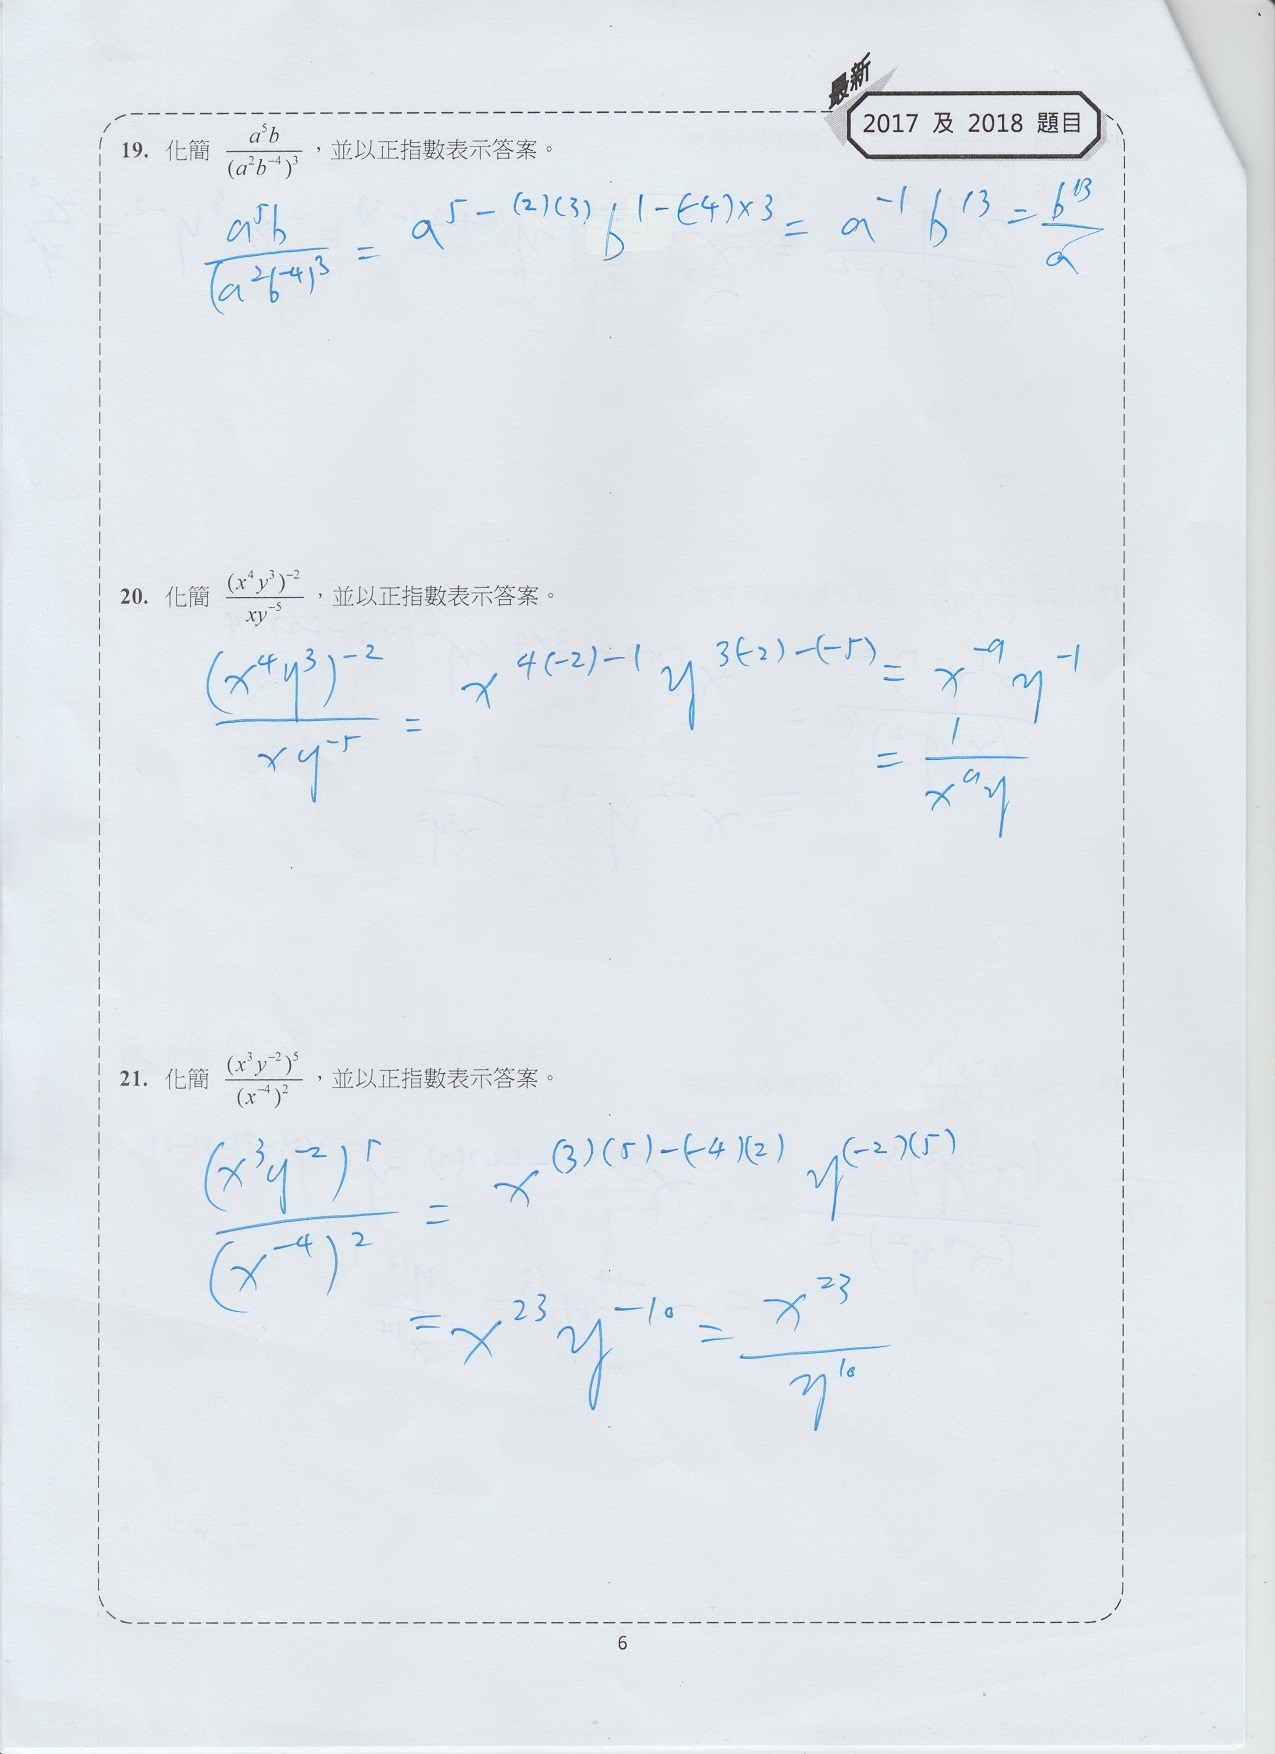 最新
2017 及 2018 題目
19. 化簡 \frac{a^5b}{(a^2b^{-4})^3}，並以正指數表示答案。
\frac{a^5b}{(a^2b^{-4})^3} = a^{5-(2)(3)} b^{1-(-4)×3} = a^{-1} b^{13} = \frac{b^{13}}{a}
20. 化簡 \frac{(x^4y^3)^{-2}}{xy^{-5}}，並以正指數表示答案。
\frac{(x^4y^3)^{-2}}{xy^{-5}} = x^{4(-2)-1} y^{3(-2)-(-5)} = x^{-9} y^{-1}
= \frac{1}{x^9y}
21. 化簡 \frac{(x^3y^{-2})^5}{(x^{-4})^2}，並以正指數表示答案。
\frac{(x^3y^{-2})^5}{(x^{-4})^2} = x^{(3)(5)-(-4)(2)} y^{(-2)(5)}
= x^{23} y^{-10} = \frac{x^{23}}{y^{10}}
6